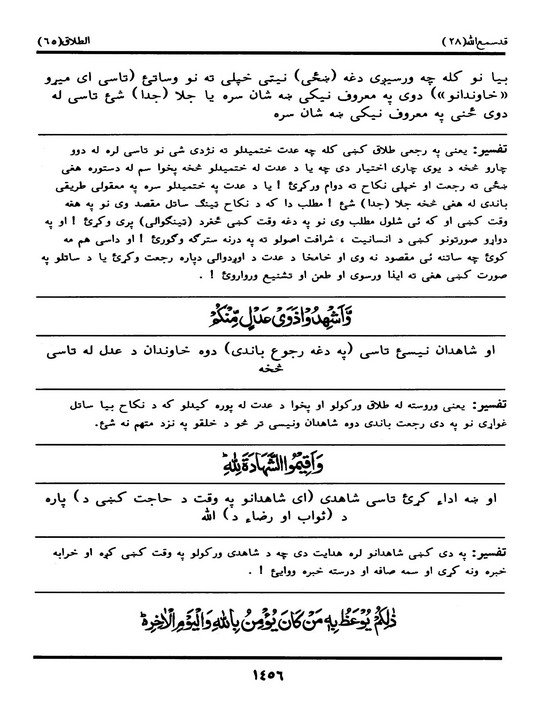 قدسمع الله (٢٨) الطلاق (٦٥)
بيا نو كله چه ورسيږي دغه (ښځي) نيتي خپلي ته نو وساتئ (تاسي اى ميړو
«خاوندانو») دوى په معروف نيكۍ ښه شان سره يا جلا (جدا) شئ تاسي له
دوى څخي په معروف نيكۍ ښه شان سره
تفسير: يعني په رجعي طلاق كښي كله چه عدت ختميدلو ته نژدي شي نو تاسي لره له دوو
چارو څخه د يوى چاري اختيار دى چه يا د عدت له ختميدلو څخه پخوا سم له دستوره هغي
ښځي ته رجعت او خپلي نكاح ته دوام وركړئ ! يا د عدت په ختميدلو سره په معقولي طريقي
باندى له هغي څخه جلا (جدا) شئ ! مطلب دا كه د نكاح ټينګ ساتل مقصد وى نو په هغه
وقت كښي او كه ئي شلول مطلب وى نو په دغه وقت كښي څغرد (ټينګوالي) پرى وكړئ ! او په
دواړو صورتونو كښي د انسانيت ، شرافت اصولو ته په درنه سترګه وګورئ ! او داسي هم مه
كوئ چه ساتنه ئي مقصود نه وى او خامخا د عدت د اوږدوالي دپاره رجعت وكړئ يا د ساتلو په
صورت كښي هغي ته ايذا ورسوى او طعن او تشنيع ورواړوئ ! .
وَّاَشْهِدُوْا ذَوَىْ عَدْلٍ مِّنْكُمْ
او شاهدان نيسئ تاسي (په دغه رجوع باندى) دوه خاوندان د عدل له تاسي
څخه
تفسير: يعني وروسته له طلاق وركولو او پخوا د عدت له پوره كيدلو كه د نكاح بيا ساتل
غواړى نو په دى رجعت باندى دوه شاهدان ونيسى تر څو د خلقو په نزد متهم نه شئ.
وَاَقِيْمُوا الشَّهَادَةَ لِلّٰهِ
او ښه اداء كړئ تاسي شاهدى (اى شاهدانو په وقت د حاجت كښي د) پاره
د (ثواب او رضاء د) الله
تفسير: په دى كښي شاهدانو لره هدايت دى چه د شاهدى وركولو په وقت كښي كږه او خرابه
خبره ونه كړى او سمه صافه او درسته خبره ووايئ ! .
ذٰلِكُمْ يُوْعَظُ بِهٖ مَنْ كَانَ يُؤْمِنُ بِاللّٰهِ وَالْيَوْمِ الْاٰخِرِ ؕ
١٤٥٦